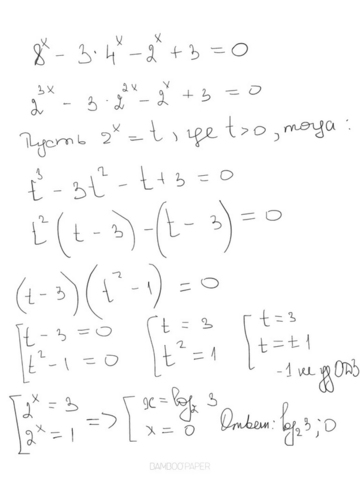 8ˣ − 3·4ˣ − 2ˣ + 3 = 0
2³ˣ − 3·2²ˣ − 2ˣ + 3 = 0
Пусть 2ˣ = t, где t > 0, тогда:
t³ − 3t² − t + 3 = 0
t²(t − 3) − (t − 3) = 0
(t − 3)(t² − 1) = 0
[t − 3 = 0 [t = 3 [t = 3
t² − 1 = 0 t² = 1 t = ±1
−1 не уд ОДЗ
[2ˣ = 3 => [x = log₂ 3
2ˣ = 1 x = 0 Ответ: log₂ 3; 0